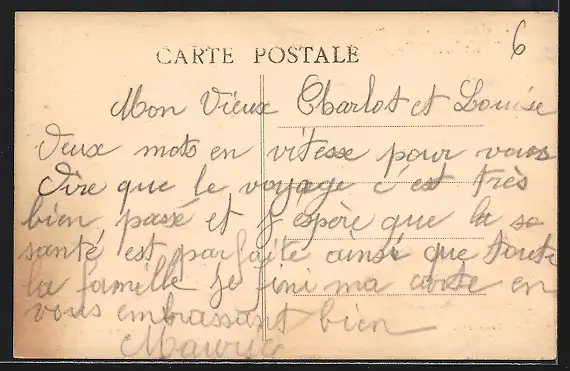 6
CARTE POSTALE
Mon Vieux Charlot et Louise
Deux mots en vitesse pour vous
dire que le voyage c'est très
bien passé et j'espère que la sa
santé est parfaite ainsi que toute
la famille je fini ma carte en
vous embrassant bien
Maurice